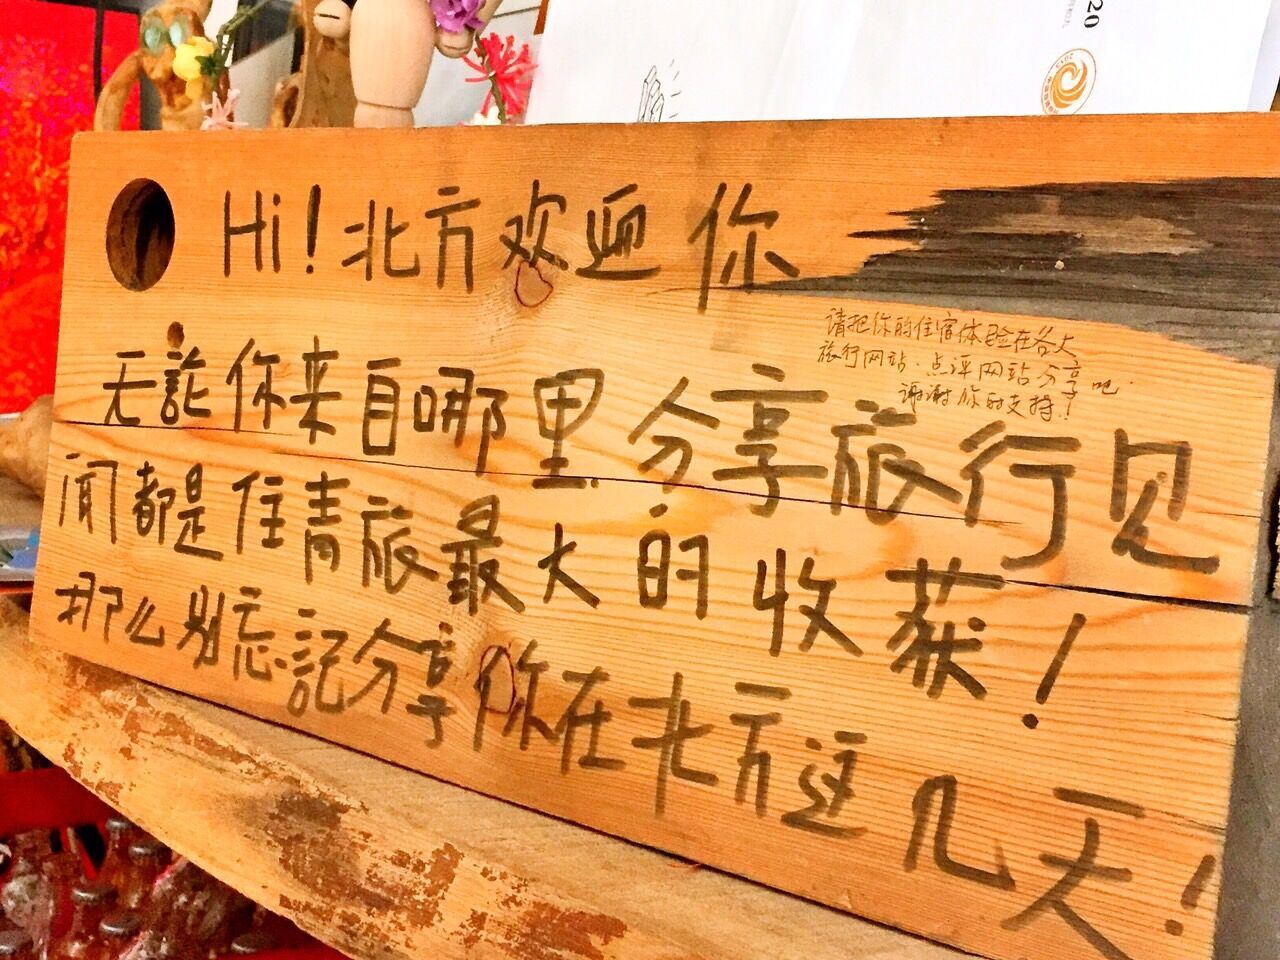 Hi！北方欢迎你
无訛你来自哪里分享旅行见
闻都是住青旅最大的收获！
那么别忘記分享你在北方这几天！
请把你的住宿体验在各大
旅行网站、点评网站分享吧
谢谢你的支持！
20